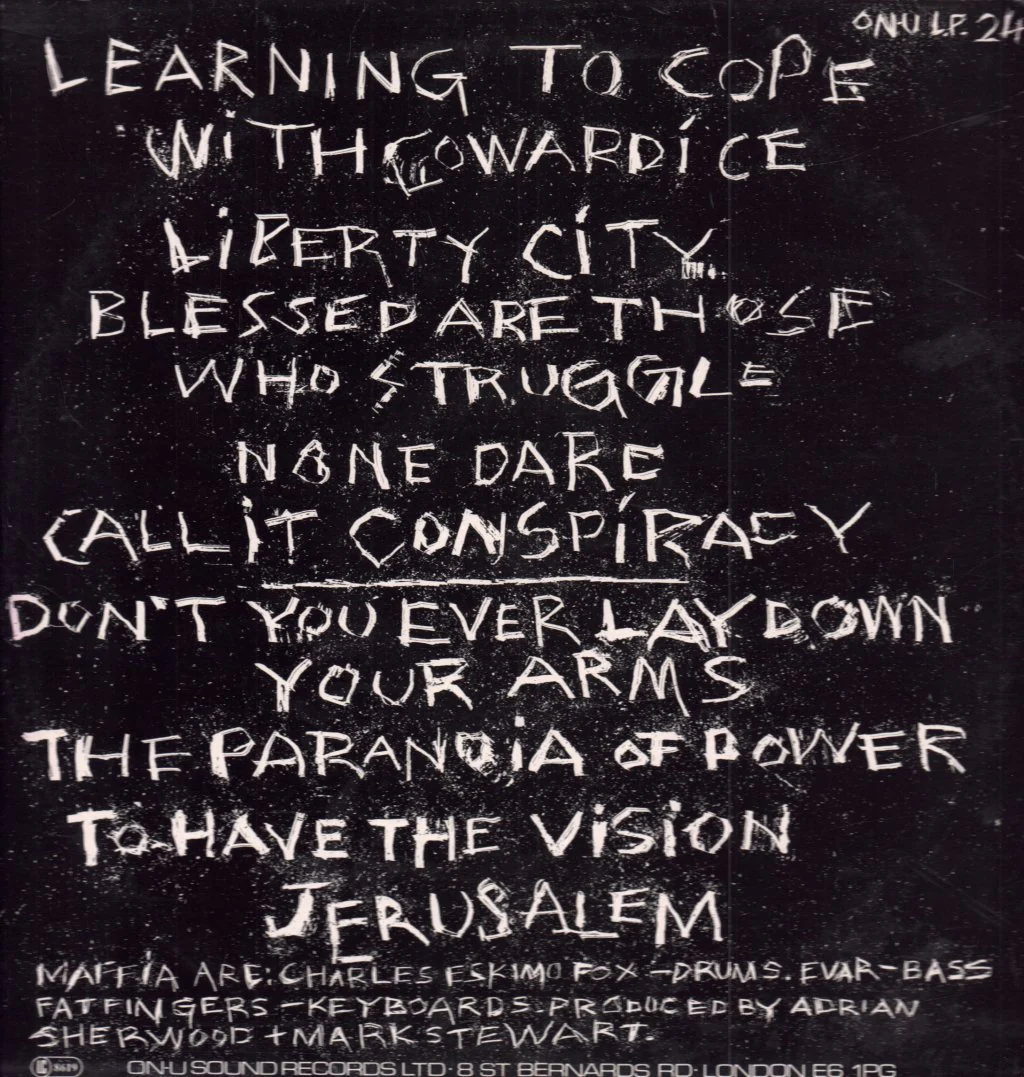 ON-U LP. 24
LEARNING TO COPE
WITH COWARDICE
LIBERTY CITY
BLESSED ARE THOSE
WHO STRUGGLE
NONE DARE
CALL IT CONSPIRACY
DON'T YOU EVER LAY DOWN
YOUR ARMS
THE PARANOIA OF POWER
TO HAVE THE VISION
JERUSALEM
MAFFIA ARE: CHARLES ESKIMO FOX – DRUMS. EVAR – BASS
FATFINGERS – KEYBOARDS. PRODUCED BY ADRIAN
SHERWOOD + MARK STEWART.
8619
ON-U SOUND RECORDS LTD · 8 ST BERNARDS RD · LONDON E6 1PG